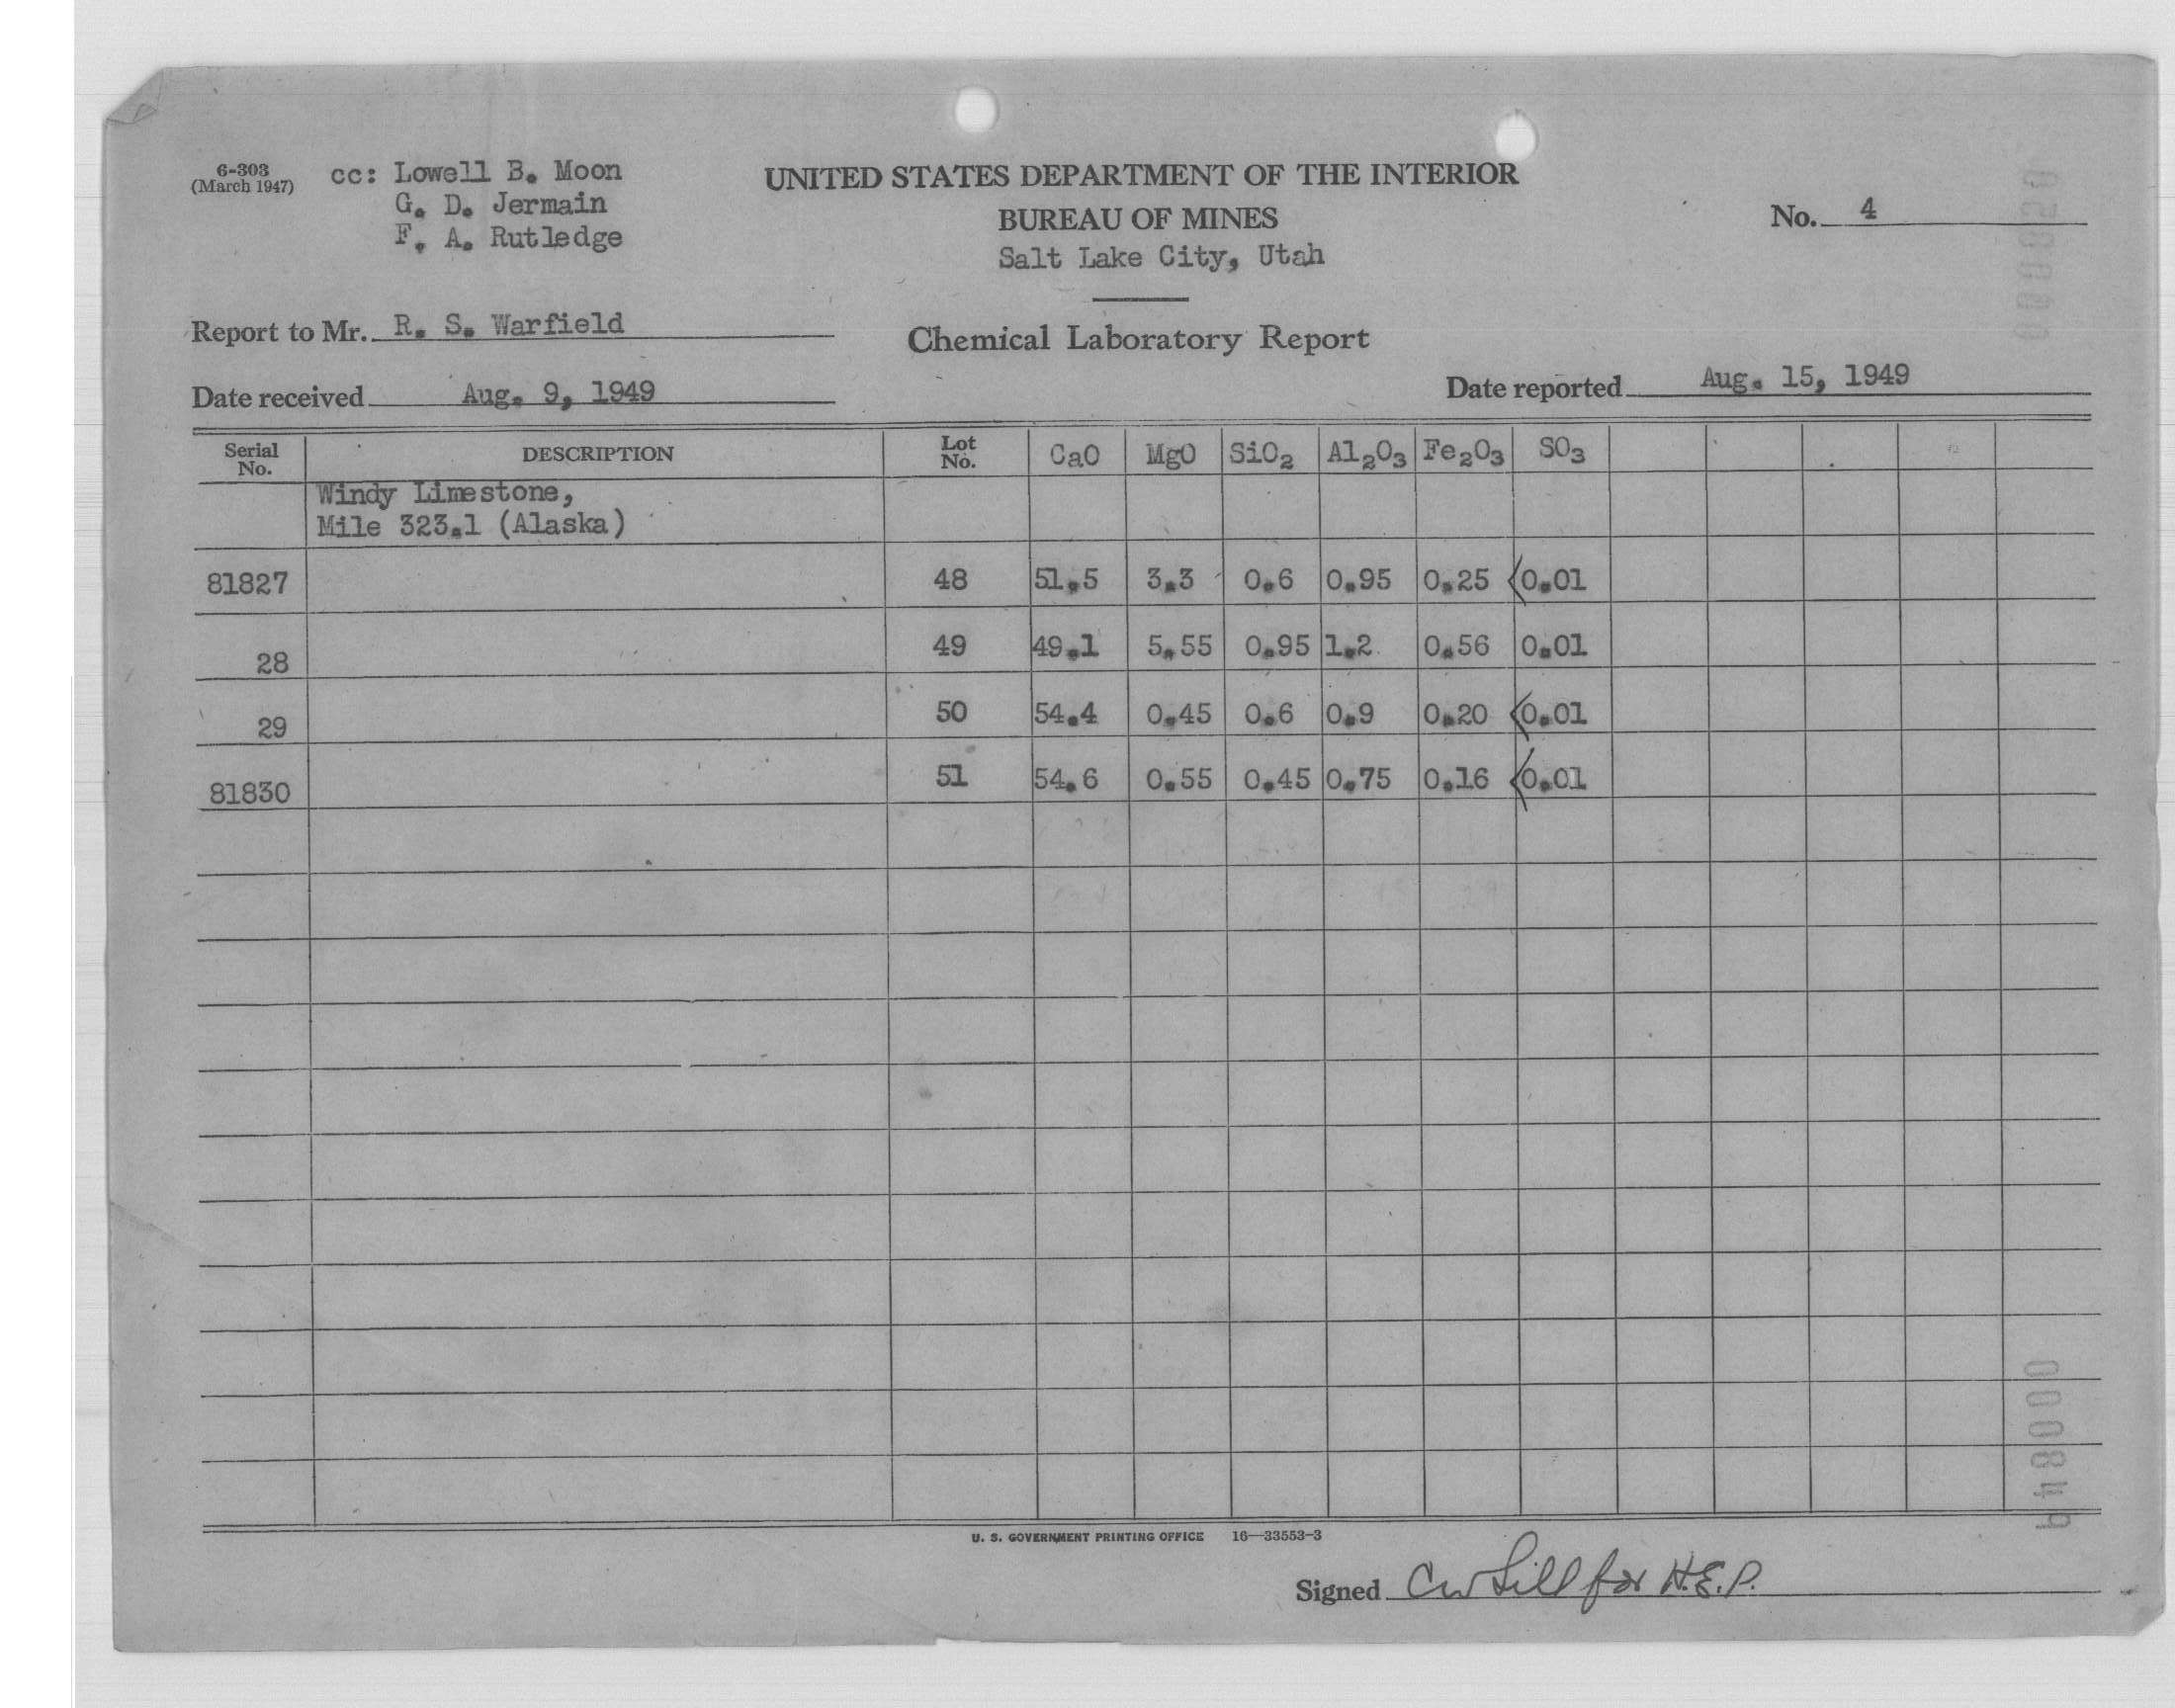 6-303
(March 1947)
cc: Lowell B. Moon
G. D. Jermain
F. A. Rutledge
UNITED STATES DEPARTMENT OF THE INTERIOR
BUREAU OF MINES
Salt Lake City, Utah
No. 4
Report to Mr. R. S. Warfield
Chemical Laboratory Report
Date received Aug. 9, 1949
Date reported Aug. 15, 1949
Serial No. DESCRIPTION Lot No. CaO MgO SiO2 Al2O3 Fe2O3 SO3
Windy Limestone,
Mile 323.1 (Alaska)
81827 48 51.5 3.3 0.6 0.95 0.25 <0.01
28 49 49.1 5.55 0.95 1.2 0.56 0.01
29 50 54.4 0.45 0.6 0.9 0.20 <0.01
81830 51 54.6 0.55 0.45 0.75 0.16 <0.01
U. S. GOVERNMENT PRINTING OFFICE 16—33553-3
Signed CW Sill for H.E.P.